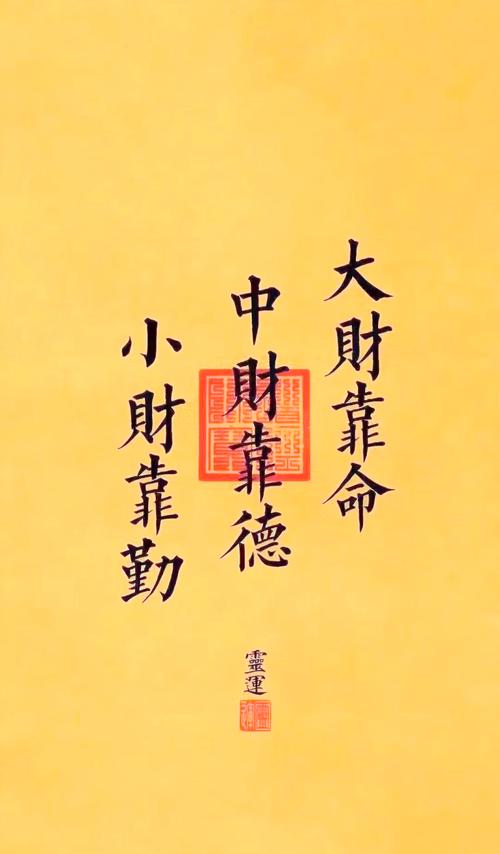 大財靠命
中財靠德
小財靠勤
靈運